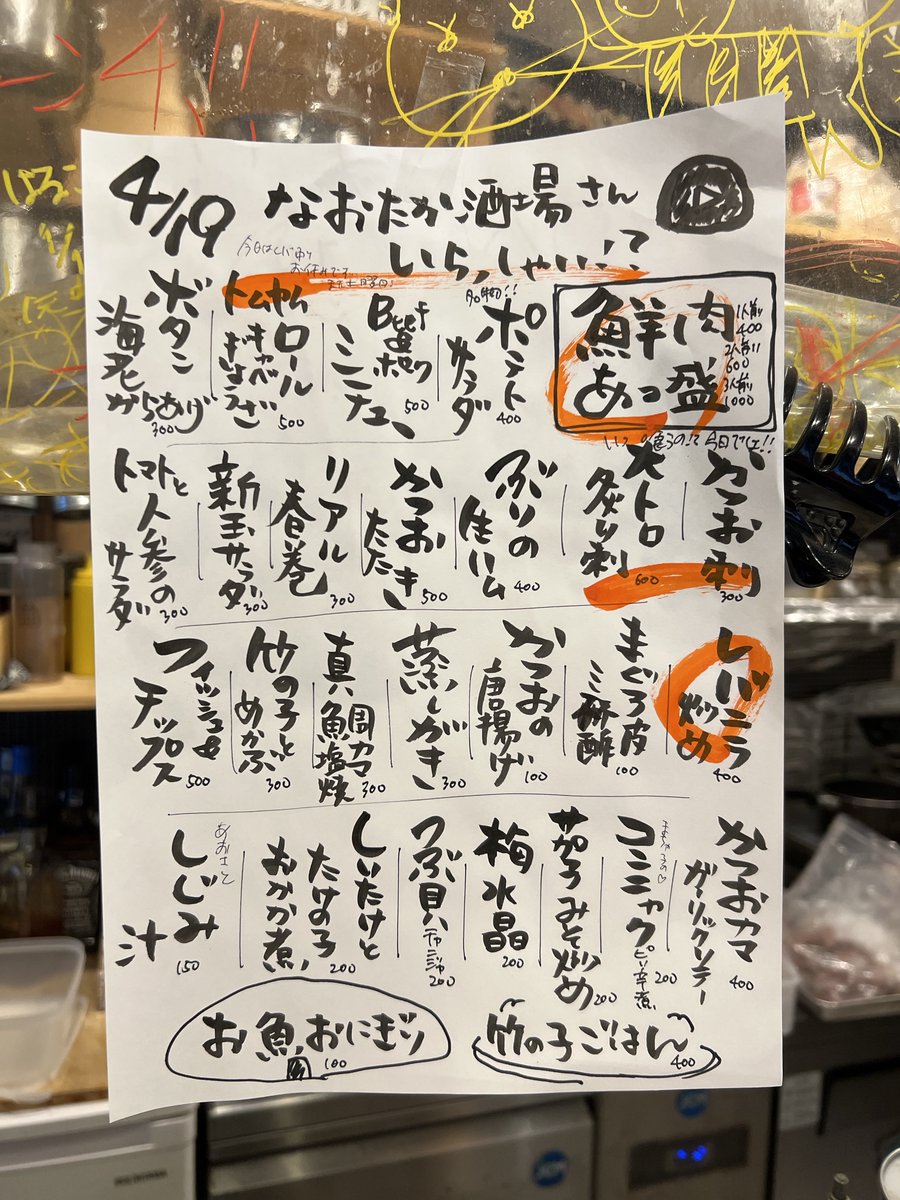 4/19
なおたか酒場さん
いらっしゃい!?
今日はしびれり
お休みです
鮮肉
あっ盛
1人前 400
2人前 600
3人前 1000
ポテト
サラダ
400
Beef &
ポーク
ミンチュー
500
トムヤム
ロール
キャベツ
ぎょうざ
500
ボタン
海老
からあげ
300
今日でせ!!
かつお刺
300
大トロ
炙り刺
600
ぶりの
生ハム
400
かつお
たたき
500
リアル
春巻
300
新玉サラダ
300
トマトと
人参の
サラダ
300
レバニラ
炒め
400
まぐろ皮
ミ酢
100
かつおの
唐揚げ
100
蒸しがき
300
真鯛カマ
塩焼
300
竹の子と
めかぶ
300
フィッシュ&
チップス
500
かつおカマ
ガーリックソテー
400
コンニャク
ピリ辛煮
200
みそ炒め
200
梅水晶
200
つぶ貝
チャンジャ
200
しいたけと
たけの子
おかか煮
200
あおさと
しじみ
汁
150
竹の子ごはん
400
お魚おにぎり
100